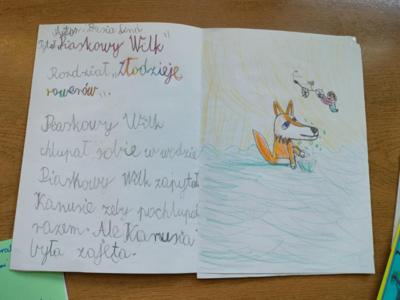 Autor: Dasia
Tytuł "Piaskowy Wilk"
Rozdział "Złodzieje
rowerów".
Piaskowy Wilk
chlupał sobie w wodzie
Piaskowy Wilk zapytał
Karusie żeby pochlupać
razem. Ale Karusia
była zajęta.